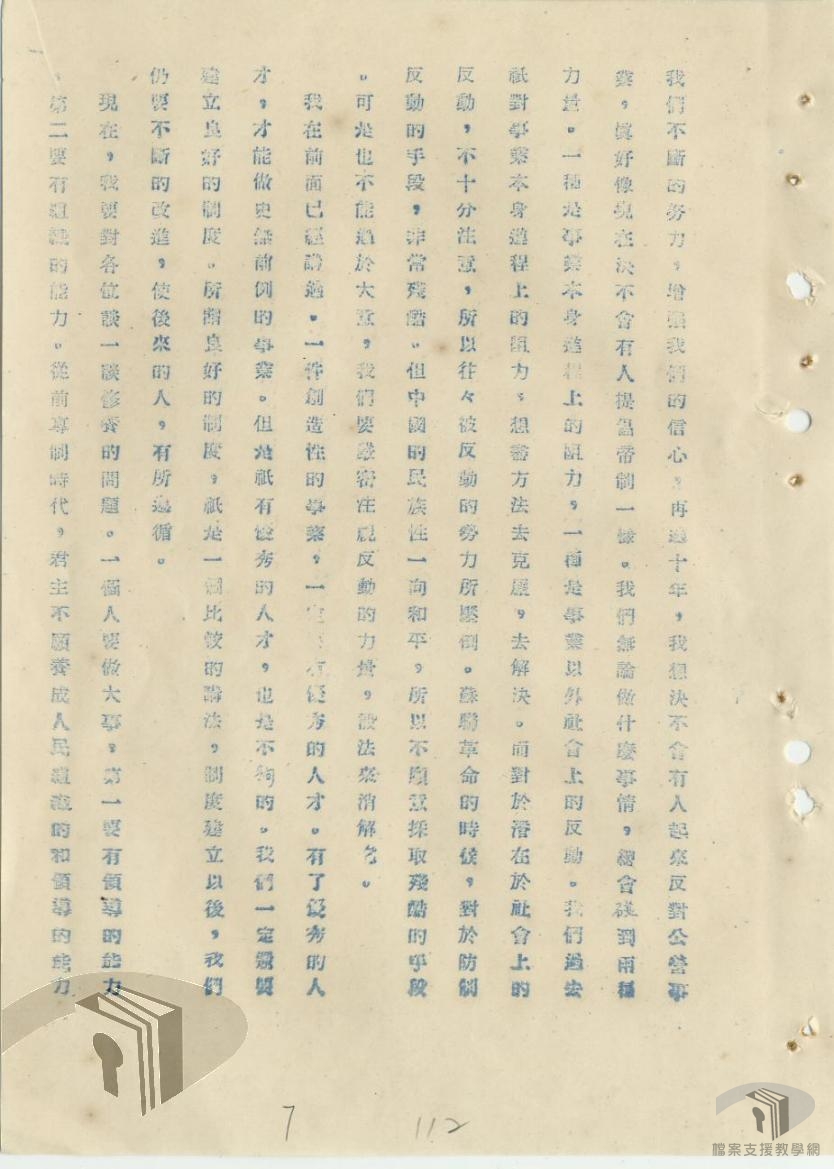 我們不斷的努力，增强我們的信心，再過十年，我想決不會有人起來反對公營事
業，眞好像現在決不會有人提倡帝制一樣。我們無論做什麼事情，總會碰到兩種
力量。一種是事業本身進程上的阻力，一種是事業以外社會上的反動。我們過去
祇對事業本身進程上的阻力，想盡方法去克服，去解決。而對於潛在於社會上的
反動，不十分注意，所以往々被反動的勢力所壓倒。蘇聯革命的時候，對於防制
反動的手段，非常殘酷。但中國的民族性一向和平，所以不願意採取殘酷的手段
。可是也不能過於大意，我們要嚴密注視反動的力量，設法來消解它。
我在前面已經講過。一件創造性的事業，一定有優秀的人才。有了優秀的人
才，才能做史無前例的事業。但是祇有優秀的人才，也是不夠的。我們一定還要
建立良好的制度。所謂良好的制度，祇是一個比較的講法，制度建立以後，我們
仍要不斷的改進，使後來的人，有所遵循。
現在，我要對各位談一談修養的問題。一個人要做大事，第一要有領導的能力
，第二要有組織的能力。從前專制時代，君主不願養成人民組織的和領導的能力，
7
112
檔案支援教學網